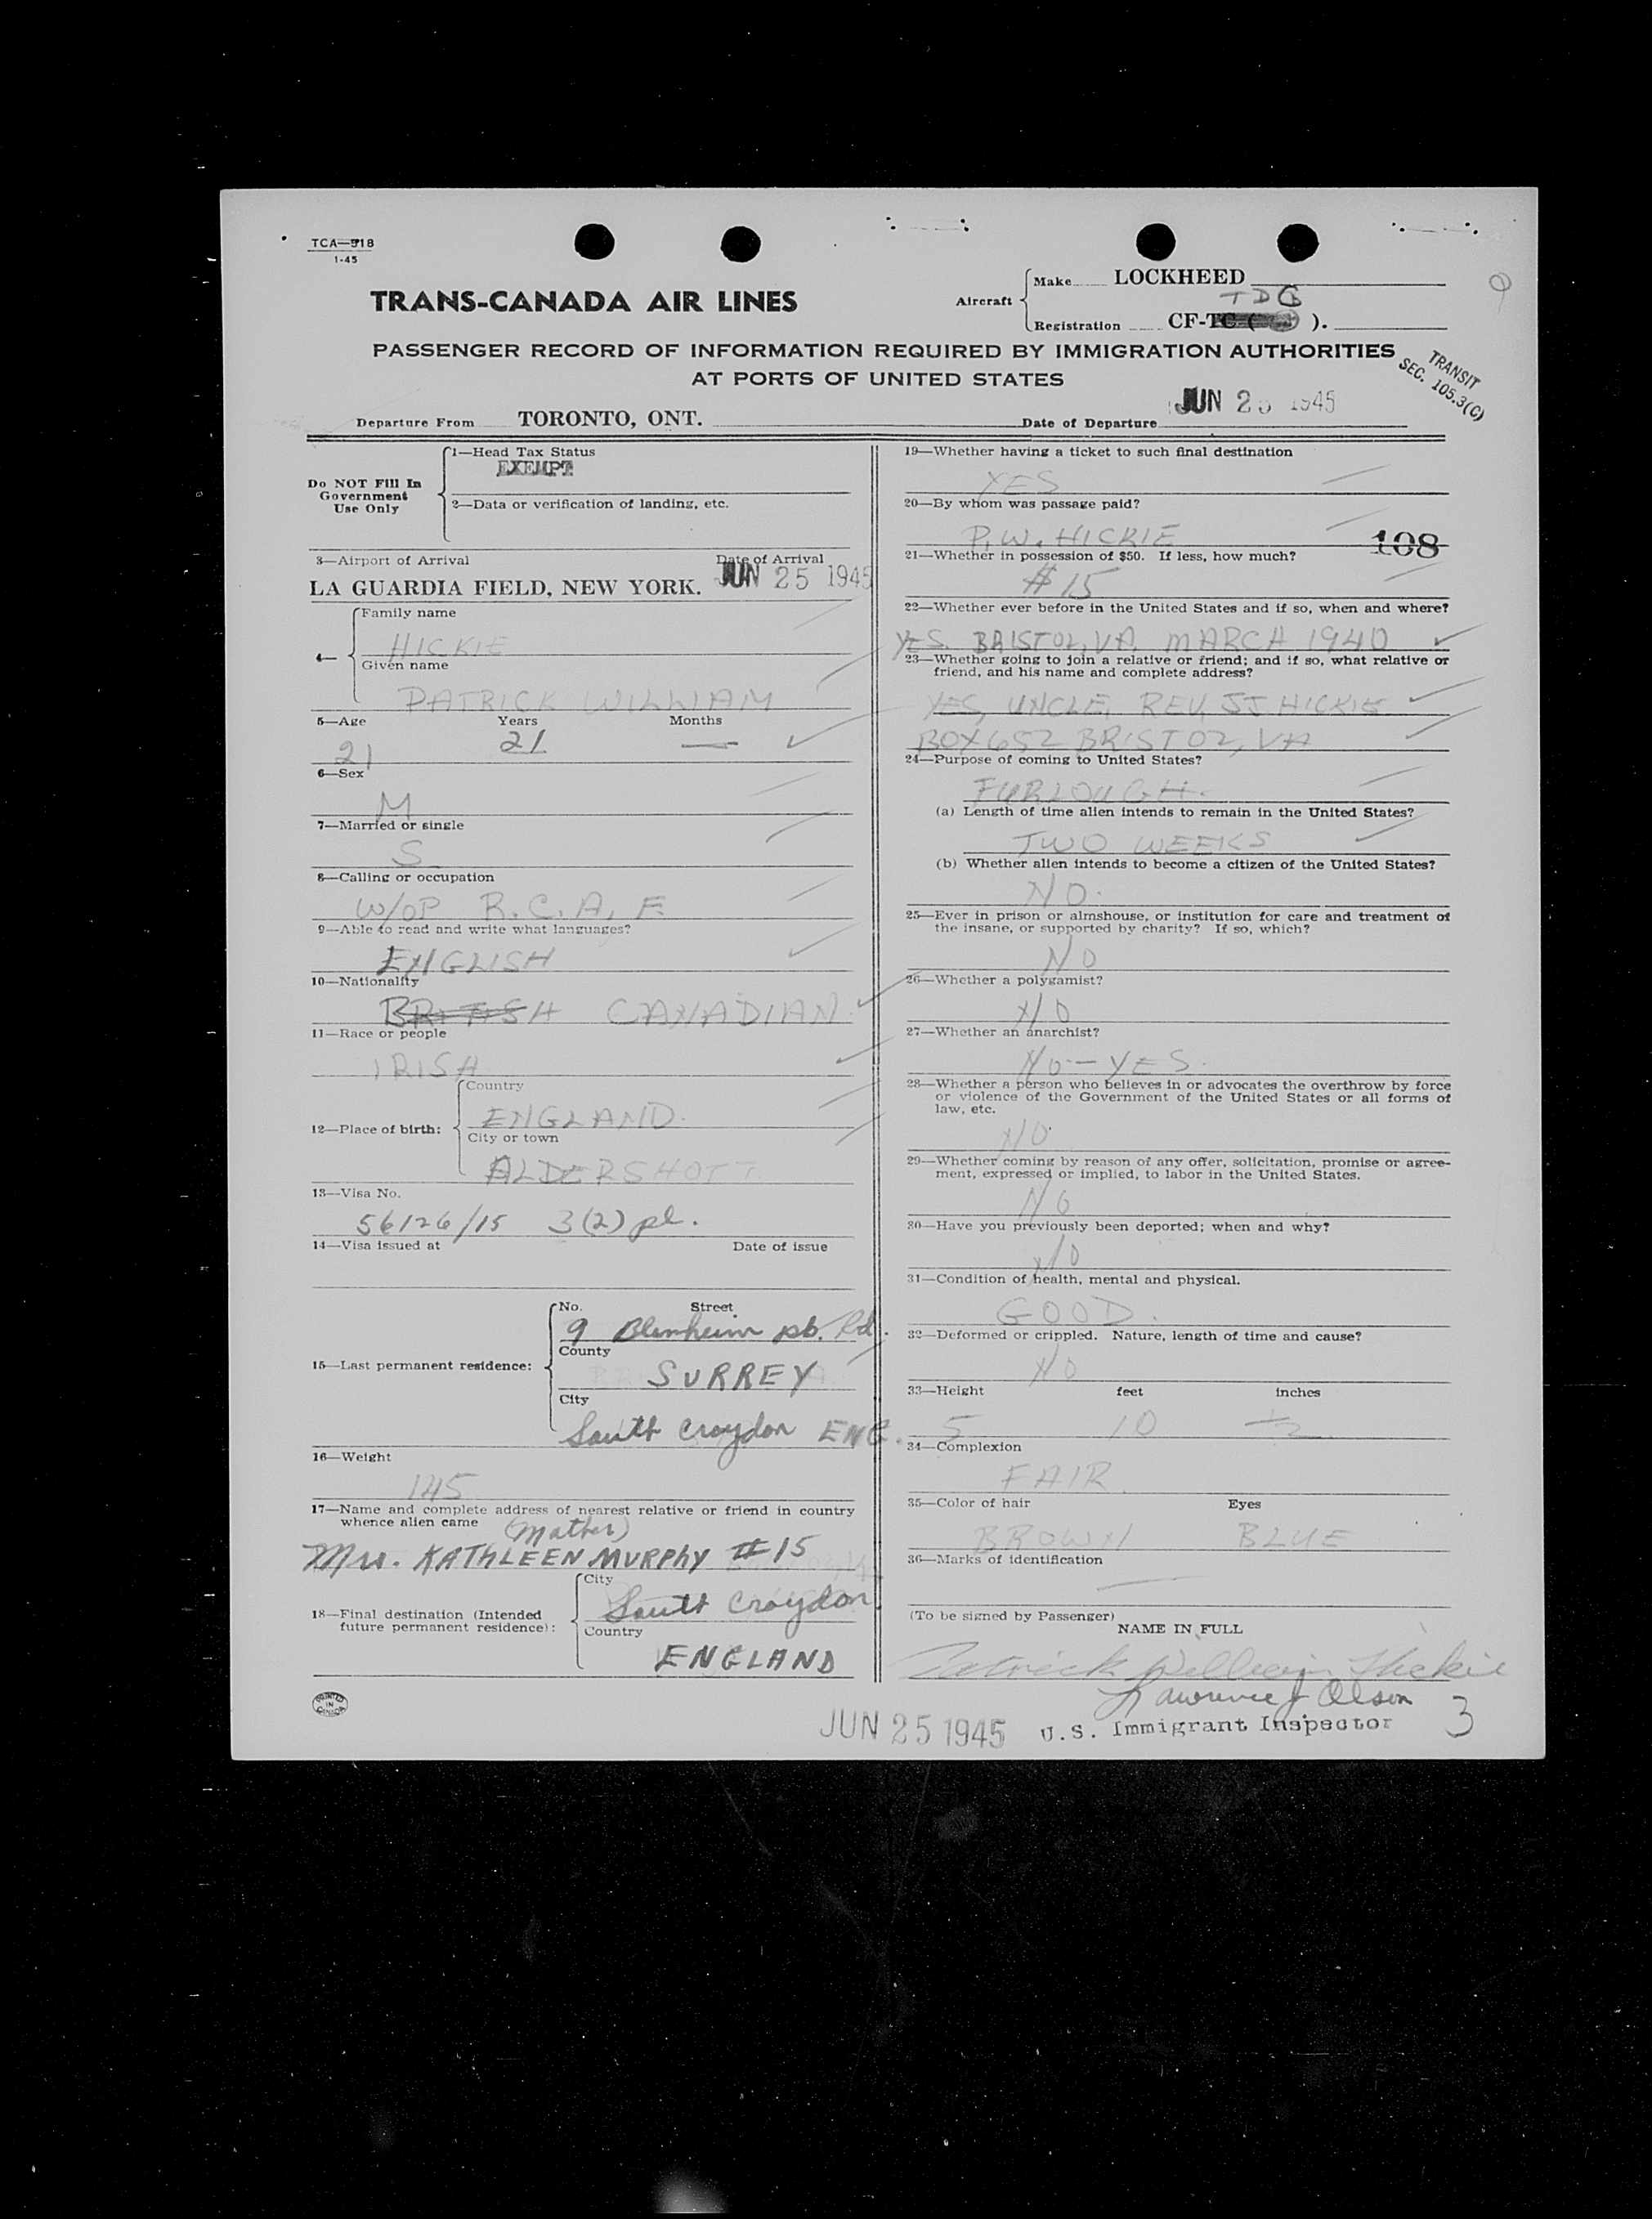 TCA—518
1-45
TRANS-CANADA AIR LINES
Aircraft
Make LOCKHEED
TDG
Registration CF-TC ( ).
PASSENGER RECORD OF INFORMATION REQUIRED BY IMMIGRATION AUTHORITIES
AT PORTS OF UNITED STATES
TRANSIT
SEC. 105.3(C)
Departure From TORONTO, ONT. Date of Departure JUN 25 1945
Do NOT Fill In
Government
Use Only
1—Head Tax Status
EXEMPT
2—Data or verification of landing, etc.
3—Airport of Arrival Date of Arrival
LA GUARDIA FIELD, NEW YORK. JUN 25 1945
4— Family name
HICKIE
Given name
PATRICK WILLIAM
5—Age Years Months
21 21 —
6—Sex
M
7—Married or single
S
8—Calling or occupation
W/OP R.C.A.F.
9—Able to read and write what languages?
ENGLISH
10—Nationality
BRITISH CANADIAN
11—Race or people
IRISH
12—Place of birth:
Country
ENGLAND.
City or town
ALDERSHOTT
13—Visa No.
56126/15 3(2) pl.
14—Visa issued at Date of issue
15—Last permanent residence:
No. Street
9 Blenheim pk. Rd.
County
SURREY
City
South Croydon ENG.
16—Weight
145
17—Name and complete address of nearest relative or friend in country
whence alien came
(Mother)
Mrs. KATHLEEN MURPHY #15
18—Final destination (Intended
future permanent residence):
City
South Croydon
Country
ENGLAND
PRINTED
IN
CANADA
19—Whether having a ticket to such final destination
YES
20—By whom was passage paid?
P.W. HICKIE
108
21—Whether in possession of $50. If less, how much?
$15
22—Whether ever before in the United States and if so, when and where?
YES. BRISTOL, VA. MARCH 1940
23—Whether going to join a relative or friend; and if so, what relative or
friend, and his name and complete address?
YES, UNCLE, REV, JJ HICKIE
BOX 652 BRISTOL, VA
24—Purpose of coming to United States?
FURLOUGH.
(a) Length of time alien intends to remain in the United States?
TWO WEEKS
(b) Whether alien intends to become a citizen of the United States?
NO.
25—Ever in prison or almshouse, or institution for care and treatment of
the insane, or supported by charity? If so, which?
NO
26—Whether a polygamist?
NO
27—Whether an anarchist?
NO—YES.
28—Whether a person who believes in or advocates the overthrow by force
or violence of the Government of the United States or all forms of
law, etc.
NO
29—Whether coming by reason of any offer, solicitation, promise or agree-
ment, expressed or implied, to labor in the United States.
NO
30—Have you previously been deported; when and why?
NO
31—Condition of health, mental and physical.
GOOD.
32—Deformed or crippled. Nature, length of time and cause?
NO
33—Height feet inches
5 10 ½
34—Complexion
FAIR.
35—Color of hair Eyes
BROWN BLUE
36—Marks of identification
—
(To be signed by Passenger)
NAME IN FULL
Patrick William Hickie
Lawrence J. Olson 3
JUN 25 1945 U.S. Immigrant Inspector